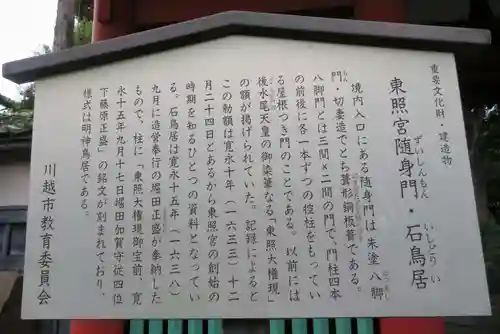 重要文化財・建造物
東照宮随身門・石鳥居
ずいしんもん
いしどりい
境内入口にある随身門は朱塗八脚
門・切妻造でとち葺形銅板葺である。
もん
八脚門とは三間×二間の門で、門柱四本
の前後に各一本ずつの控柱をもってい
る屋根つき門のことである。以前には
後水尾天皇の御染筆なる「東照大権現」
の額が掲げられていた。記録によると
この勅額は寛永十年（一六三三）十二
月二十四日とあるから東照宮の創始の
時期を知るひとつの資料となってい
る。石鳥居は寛永十五年（一六三八）
九月に造営奉行の堀田正盛が奉納した
もので、柱に「東照大権現御宝前、寛
永十五年九月十七日堀田加賀守従四位
下藤原正盛」の銘文が刻まれており、
様式は明神鳥居である。
川越市教育委員会